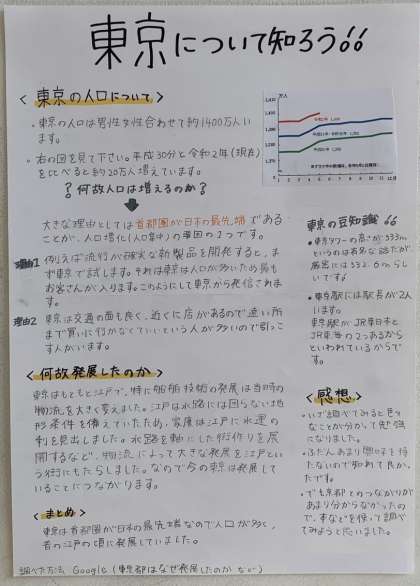 東京について知ろう!!
〈東京の人口について〉
・東京の人口は男性女性合わせて約1400万人います。
・右の図を見て下さい。平成30分と令和2年(現在)
を比べると約20万人増えています。
?何故人口は増えるのか?
大きな理由としては首都圏が日本の最先端である
ことが、人口増化(人口集中)の要因の1つです。
理由1 例えば流行が確実な新製品を開発すると、ま
ず東京で試します。それは東京は人口が多いため最も
お客さんが入ります。このようにして東京から発信されま
す。
理由2 東京は交通の面も良く、近くに店があるので遠い所
まで買いに行かなくていいという人が多いので引っこ
す人がいます。
〈何故発展したのか〉
東京はもともと江戸で、特に船舶技術の発展は当時の
物流を大きく変えました。江戸は水路には困らない地
形条件を備えていたため、家康は江戸に水運の
利を見出しました。水路を軸にした街作りを展
開するなど、物流によって大きな発展を江戸とい
う街にもたらしました。なので今の東京は発展して
いることにつながります。
〈まとめ〉
東京は首都圏が日本の最先端なので人口が多く、
昔の江戸の頃に発展していました。
調べた方法 Google(東京都はなぜ発展したのか など)
万人
1,410
1,390
1,370
1,350
1 2 3 4 5 6 7 8 9 10 11 12月
東京の豆知識!!
・東京タワーの高さが333m
というのは有名な話だが、
厳密には332.6mらし
いです!
・東京駅には駅長が2人
います。
東京駅がJR東日本と
JR東海の2つあるから
といわれているからで
す。
〈感想〉
・いざ調べてみると色々
なことが分かって勉強
になりました。
・ふだんあまり興味を持
たないので知れて良かっ
たです。
・でも京都とのつながりが
あまり分からなかったの
で、本などを使って調べ
てみようと思いました。